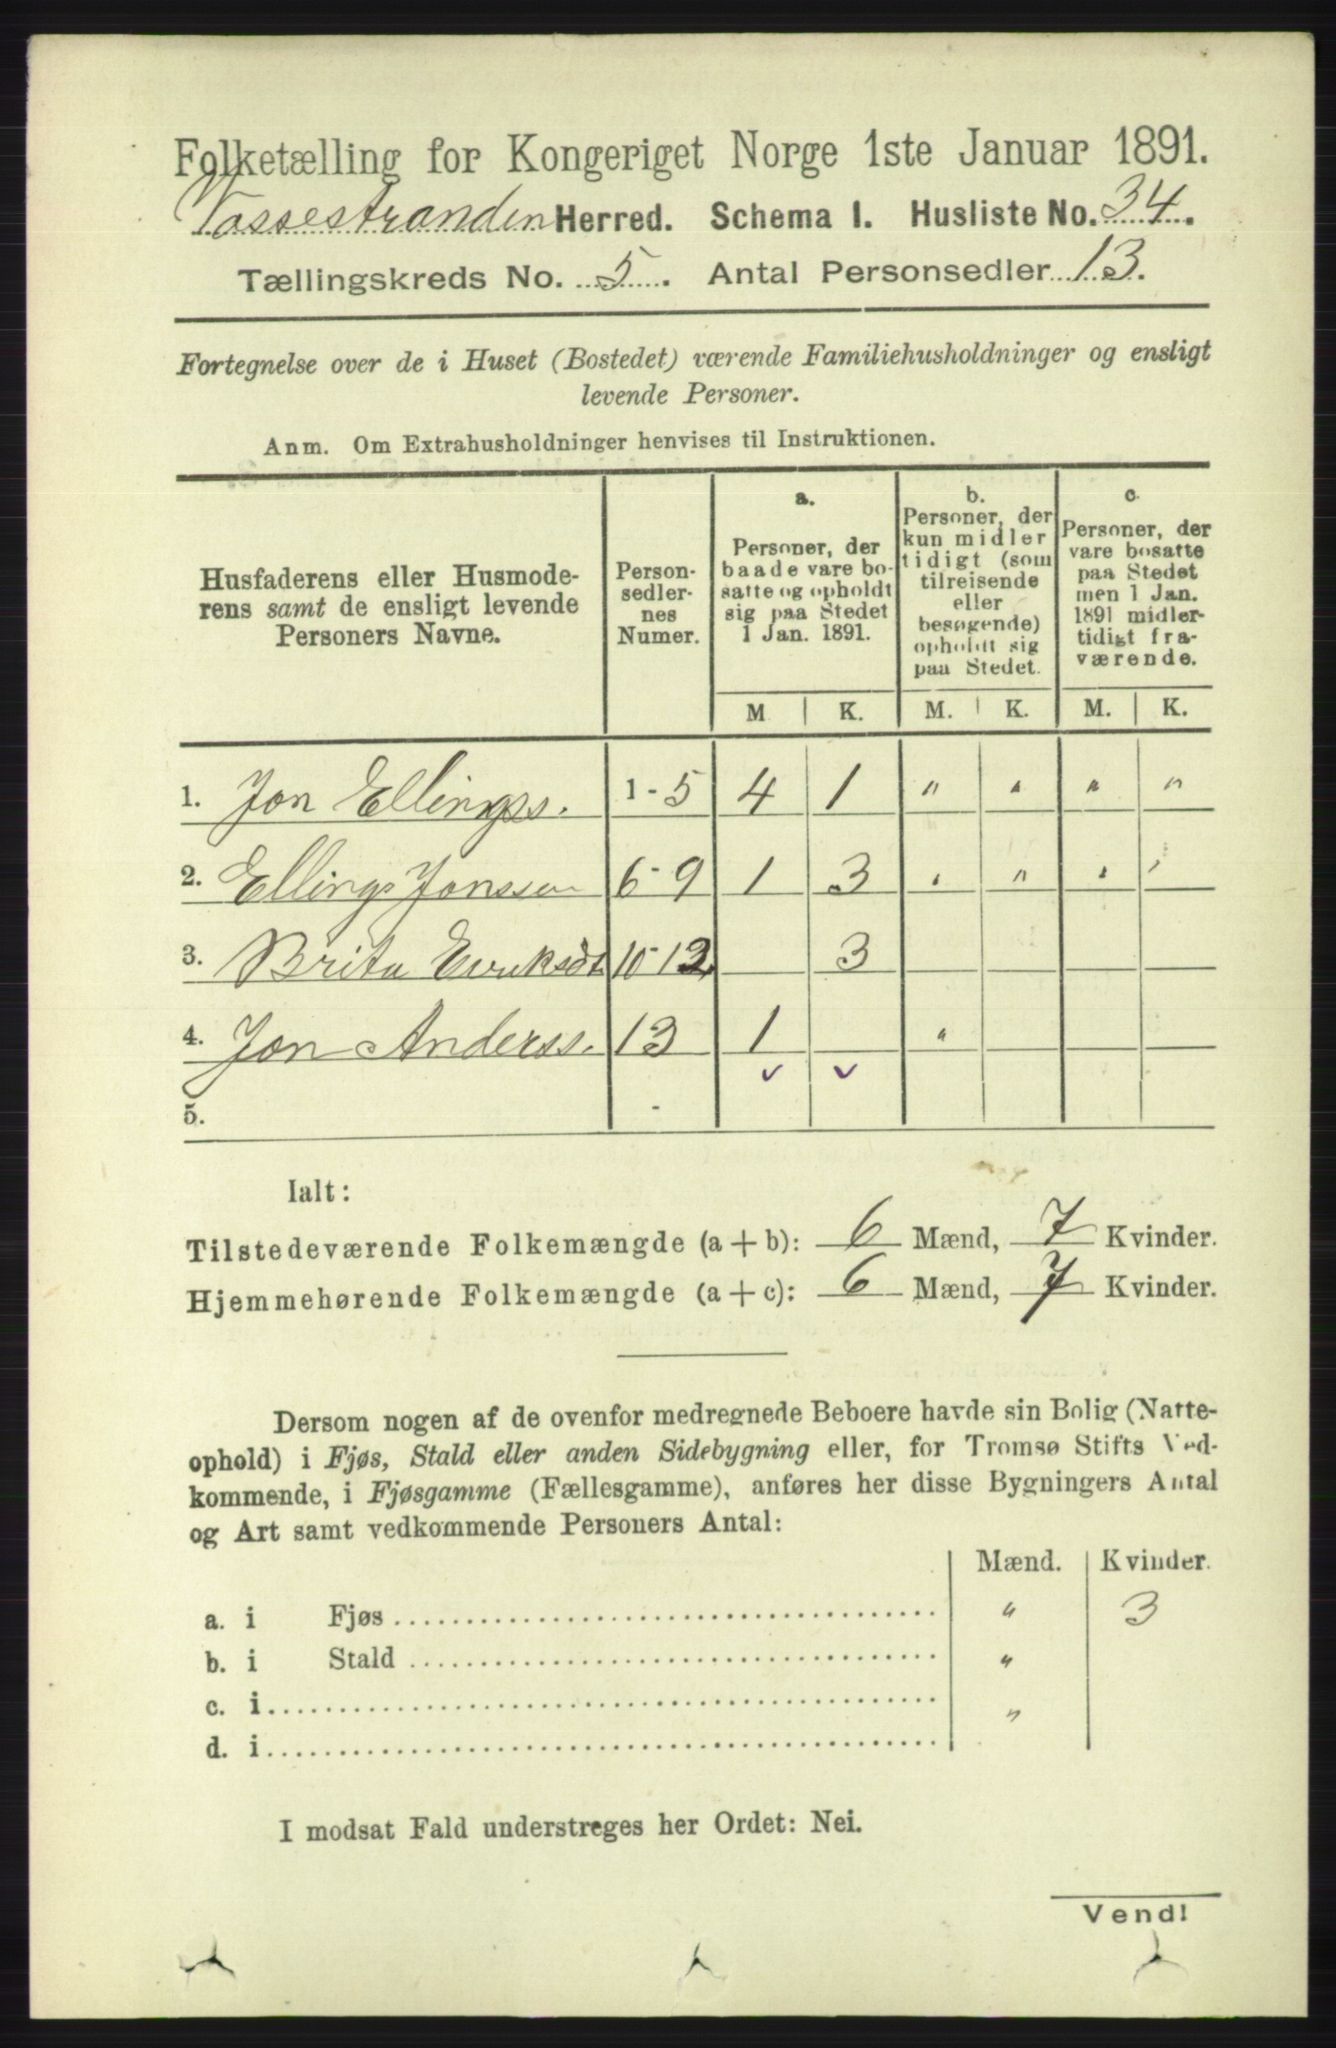 Folketælling for Kongeriget Norge 1ste Januar 1891.
Vossestranden Herred. Schema 1. Husliste No. 34.
Tællingskreds No. 5. Antal Personsedler 13.
Fortegnelse over de i Huset (Bostedet) værende Familiehusholdninger og ensligt
levende Personer.
Anm. Om Extrahusholdninger henvises til Instruktionen.
Husfaderens eller Husmode-
rens samt de ensligt levende
Personers Navne.
Person-
sedler-
nes
Numer.
a.
Personer, der
baade vare bo-
satte og opholdt
sig paa Stedet
1 Jan. 1891.
b.
Personer, der
kun midler
tidigt (som
tilreisende
eller
besøgende)
opholdt sig
paa Stedet.
c.
Personer, der
vare bosatte
paa Stedet
men 1 Jan.
1891 midler-
tidigt fra-
værende.
M K. M. K. M. K.
1. Jon Ellings. 1-5 4 1 " " " "
2. Ellings Jonsson 6-9 1 3 " " " "
3. Brita Eriksdt 10-12 3
4. Jon Anderss. 13 1 "
5. -
Ialt:
Tilstedeværende Folkemængde (a + b): 6 Mænd, 7 Kvinder.
Hjemmehørende Folkemængde (a + c): 6 Mænd, 7 Kvinder.
Dersom nogen af de ovenfor medregnede Beboere havde sin Bolig (Natte-
ophold) i Fjøs, Stald eller anden Sidebygning eller, for Tromsø Stifts Ved-
kommende, i Fjøsgamme (Fællesgamme), anføres her disse Bygningers Antal
og Art samt vedkommende Personers Antal:
Mænd. Kvinder.
a. i Fjøs " 3
b. i Stald "
c. i "
d. i
I modsat Fald understreges her Ordet: Nei.
Vend!